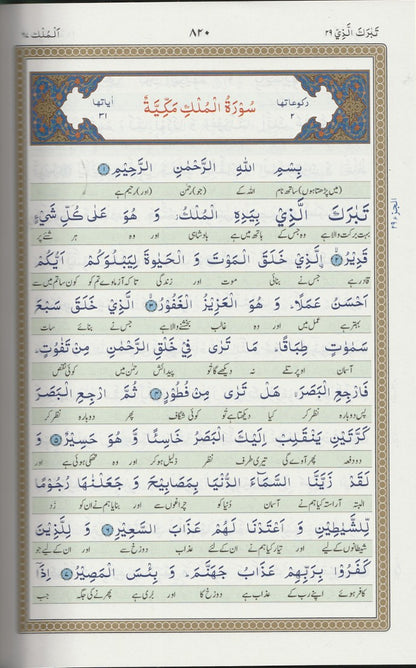 تَبٰرَكَ الَّذِيْ ٢٩
٨٢٠
اَلْمُلْك ٦٧
رکوعاتها ٢
سُوْرَةُ الْمُلْكِ مَكِّيَّةٌ
أياتها ٣١
بِسْمِ اللهِ الرَّحْمٰنِ الرَّحِيْمِ ١
(میں پڑھتا ہوں) ساتھ نام اللہ کے (جو) رحمٰن (اور) رحیم ہے
تَبٰرَكَ الَّذِيْ بِيَدِهِ الْمُلْكُ وَ هُوَ عَلٰى كُلِّ شَيْءٍ
بہت برکت والا ہے وہ جس کے ہاتھ میں ہے بادشاہی اور وہ ہر شئے پر
قَدِيْرُ ٢ الَّذِيْ خَلَقَ الْمَوْتَ وَ الْحَيٰوةَ لِيَبْلُوَكُمْ اَيُّكُمْ
قادر ہے جس نے بنائی موت اور زندگی تا کہ آزماوے تم کو کون سا تم میں سے
اَحْسَنُ عَمَلًا وَ هُوَ الْعَزِيْزُ الْغَفُوْرُ ٣ الَّذِيْ خَلَقَ سَبْعَ
بہتر ہے عمل میں اور وہ غالب بخشنے والا ہے جس نے بنائے سات
سَمٰوٰتٍ طِبَاقًا مَا تَرٰى فِيْ خَلْقِ الرَّحْمٰنِ مِنْ تَفٰوُتٍ
آسمان اوپر تلے نہ دیکھے گا تو پیدائش رحمٰن میں کوئی نقص
فَارْجِعِ الْبَصَرَ هَلْ تَرٰى مِنْ فُطُوْرٍ ٤ ثُمَّ ارْجِعِ الْبَصَرَ
پس دوبارہ نظر کر کیا دیکھتا ہے تو کوئی شگاف پھر دوبارہ نظر کر
كَرَّتَيْنِ يَنْقَلِبْ اِلَيْكَ الْبَصَرُ خَاسِئًا وَّ هُوَ حَسِيْرٌ ٥
دو دفعہ پھر آوے گی تیری طرف نظر ذلیل ہو کر اور وہ تھکی ہوئی ہے اور
لَقَدْ زَيَّنَّا السَّمَآءَ الدُّنْيَا بِمَصَابِيْحَ وَ جَعَلْنٰهَا رُجُوْمًا
البتہ آراستہ کیا ہم نے آسمان دنیا کو چراغوں سے اور بنایا ہم نے ان کو زد
لِّلشَّيٰطِيْنِ وَ اَعْتَدْنَا لَهُمْ عَذَابَ السَّعِيْرِ ٦ وَ لِلَّذِيْنَ
شیطانوں کے لیے اور تیار کیا ہم نے ان کے لئے عذاب دوزخ سے اور ان کے لیے جو
كَفَرُوْا بِرَبِّهِمْ عَذَابُ جَهَنَّمَ وَ بِئْسَ الْمَصِيْرُ ٧ اِذَآ
کافر ہوئے اپنے رب کے عذاب ہے دوزخ کا اور بُری ہے پھرنے کی جگہ جب
الجزء ٢٩